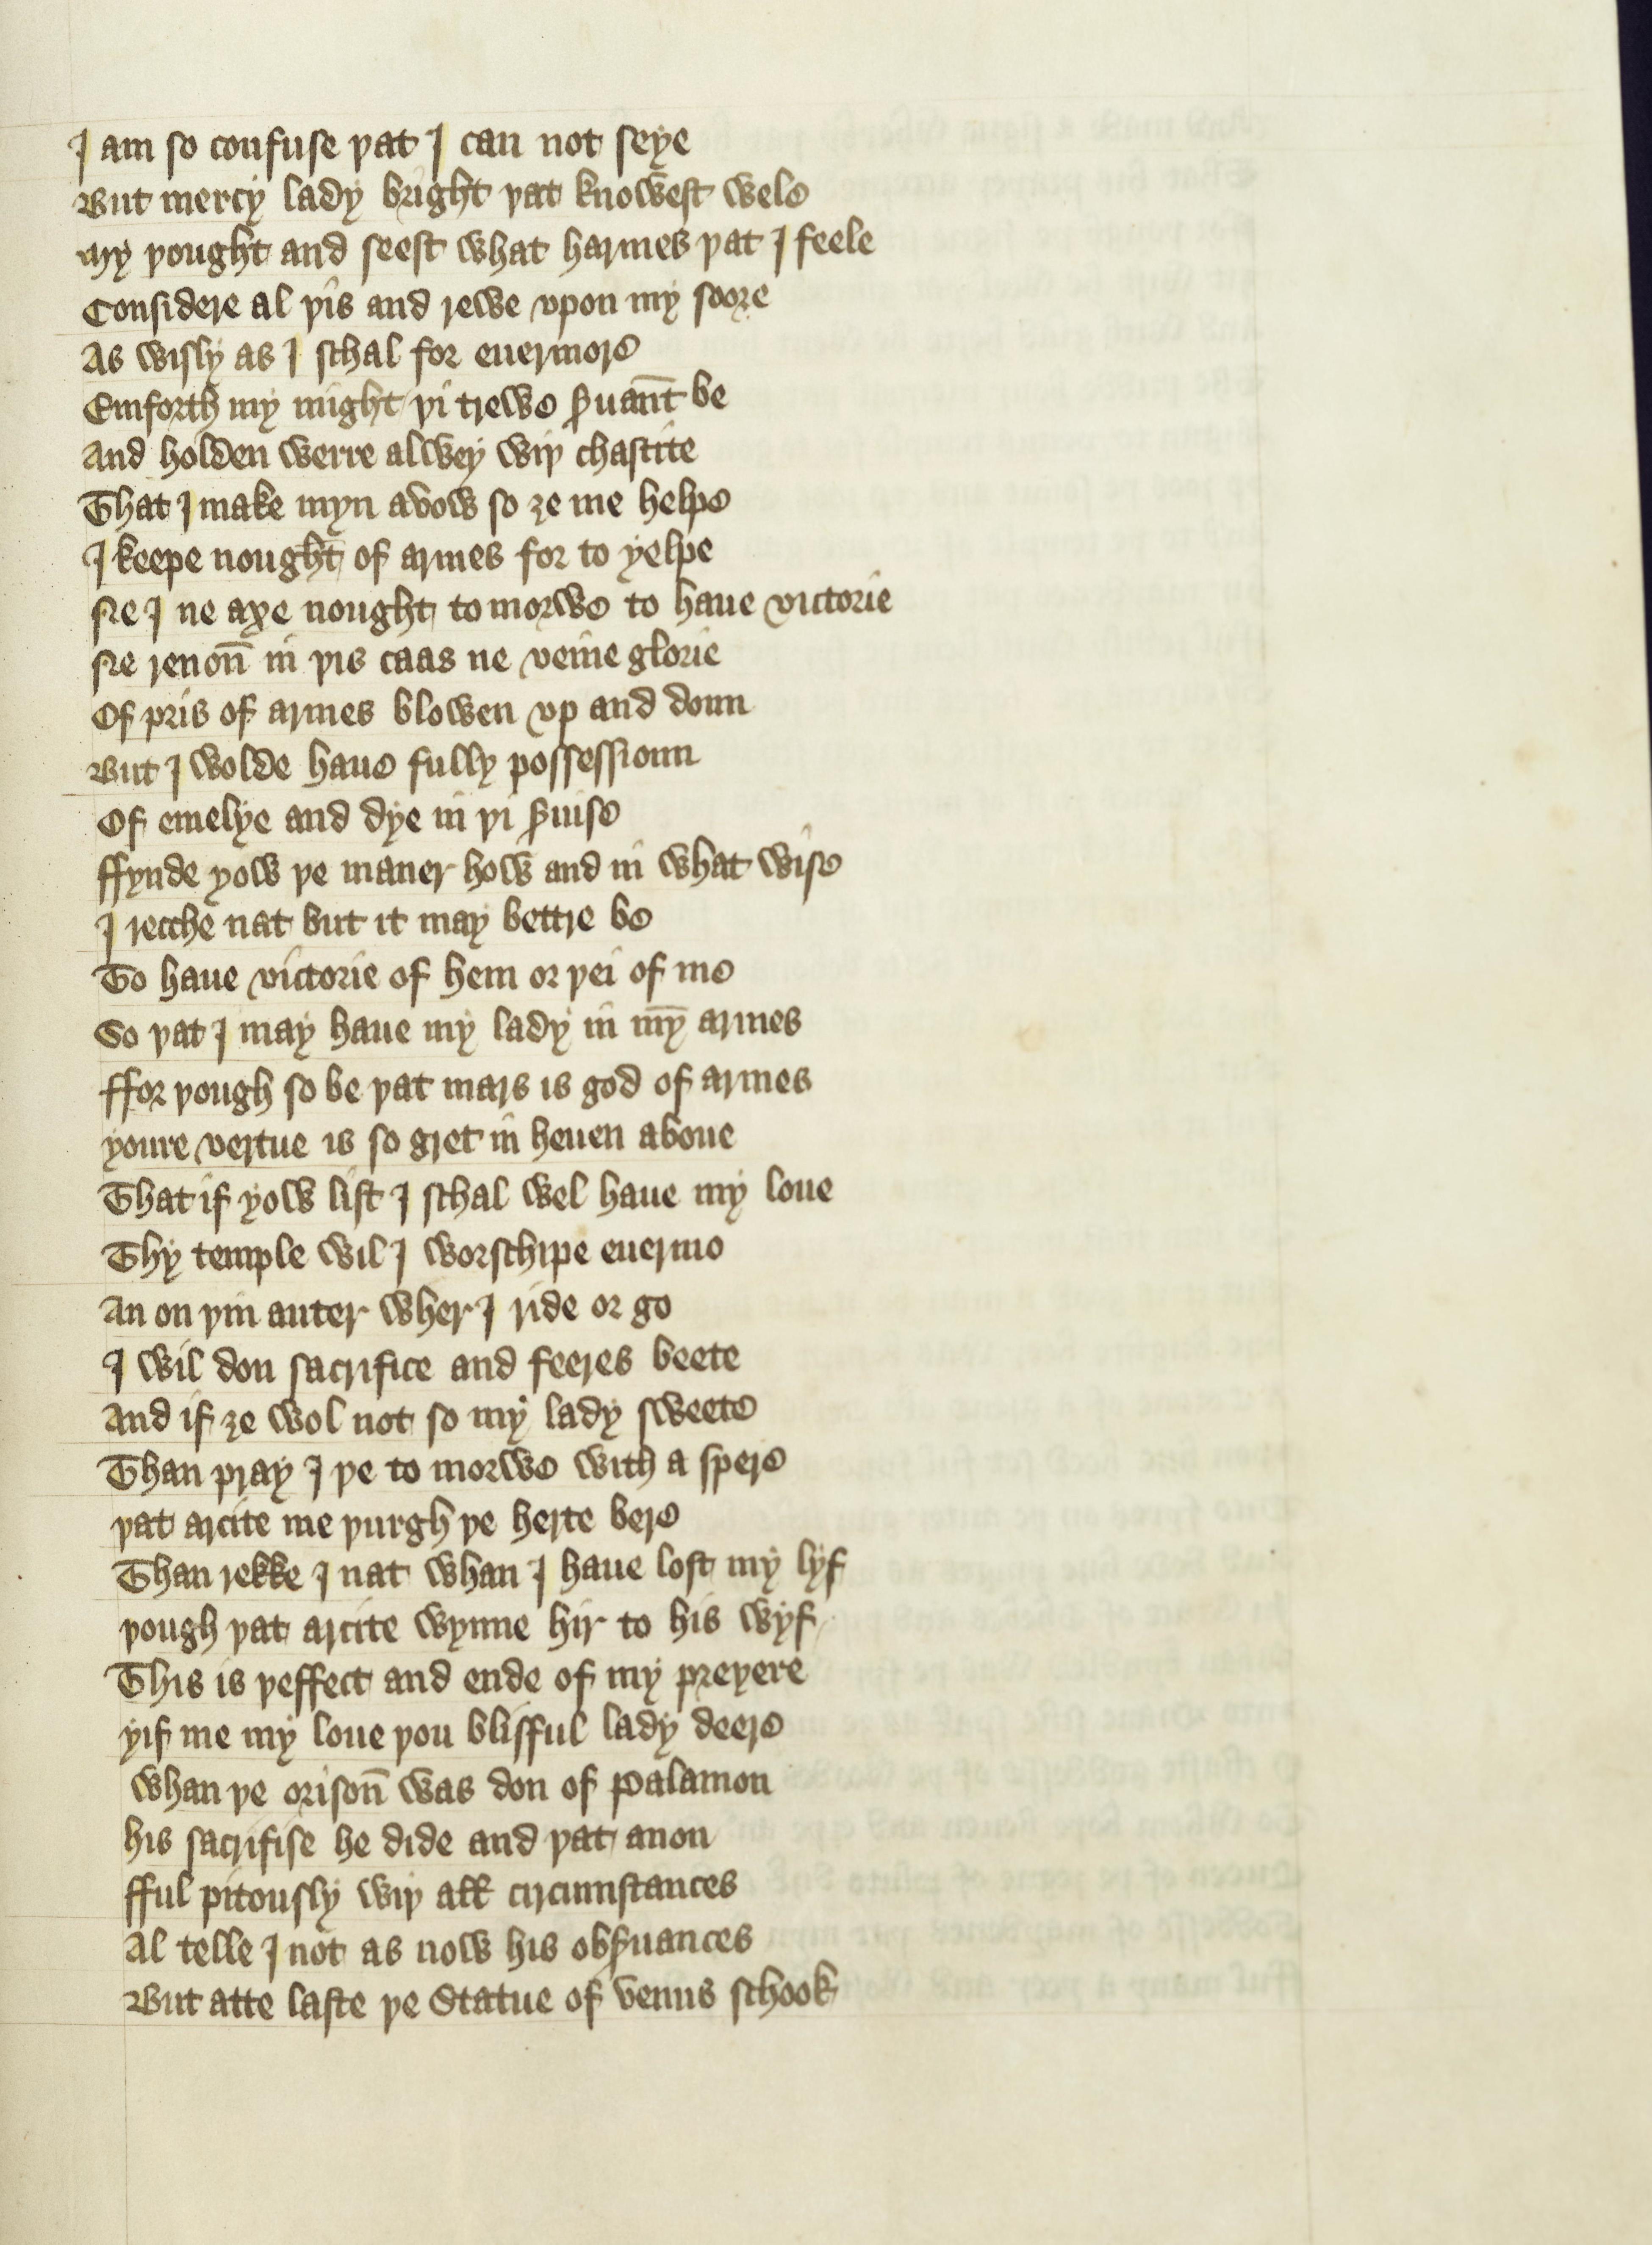 I am so confuse þat I can not seye
But mercy lady bright þat knowest wele
My þought and seest what harmes þat I feele
Considere al þis and rewe vpon my soore
As wisly as I schal for euermore
Emforth my might þi trewe ꝑuant be
And holden werre alwey wiþ chastite
That I make myn avow so ȝe me helpe
I keepe nought of armes for to yelpe
Ne I ne axe nought to morwe to haue victorie
Ne renoun̄ in þis caas ne veine glorie
Of pris of armes blowen vp and doun
But I wolde haue fully possessioun
Of emelye and dye in þi ꝑuise
ffynde yow þe maner how and in what wise
I recche nat but it may bettre be
To haue victorie of hem or þei of me
So þat I may haue my lady in my̅ armes
ffor þough so be þat mars is god of armes
youre vertue is so gret in heuen aboue
That if yow list I schal wel haue my loue
Thy temple wil I worschipe euermo
An on þin auter wher I ride or go
I wil don sacrifice and feeres beete
And if ȝe wol not so my lady sweete
Than pray I þe to morwe with a spere
þat arcite me þurgh þe herte bere
Than rekke I nat whan I haue lost my lyf
þough þat arcite wynne hir to his wyf
This is þeffect and ende of my preyere
yif me my loue þou blisful lady deere
Whan þe orison̄ was don of Palamon
his sacrifise he dide and þat anon
fful pitously wiþ alł circumstances
Al telle I not as now his obſꝑuances
But atte laste þe Statue of venus schook